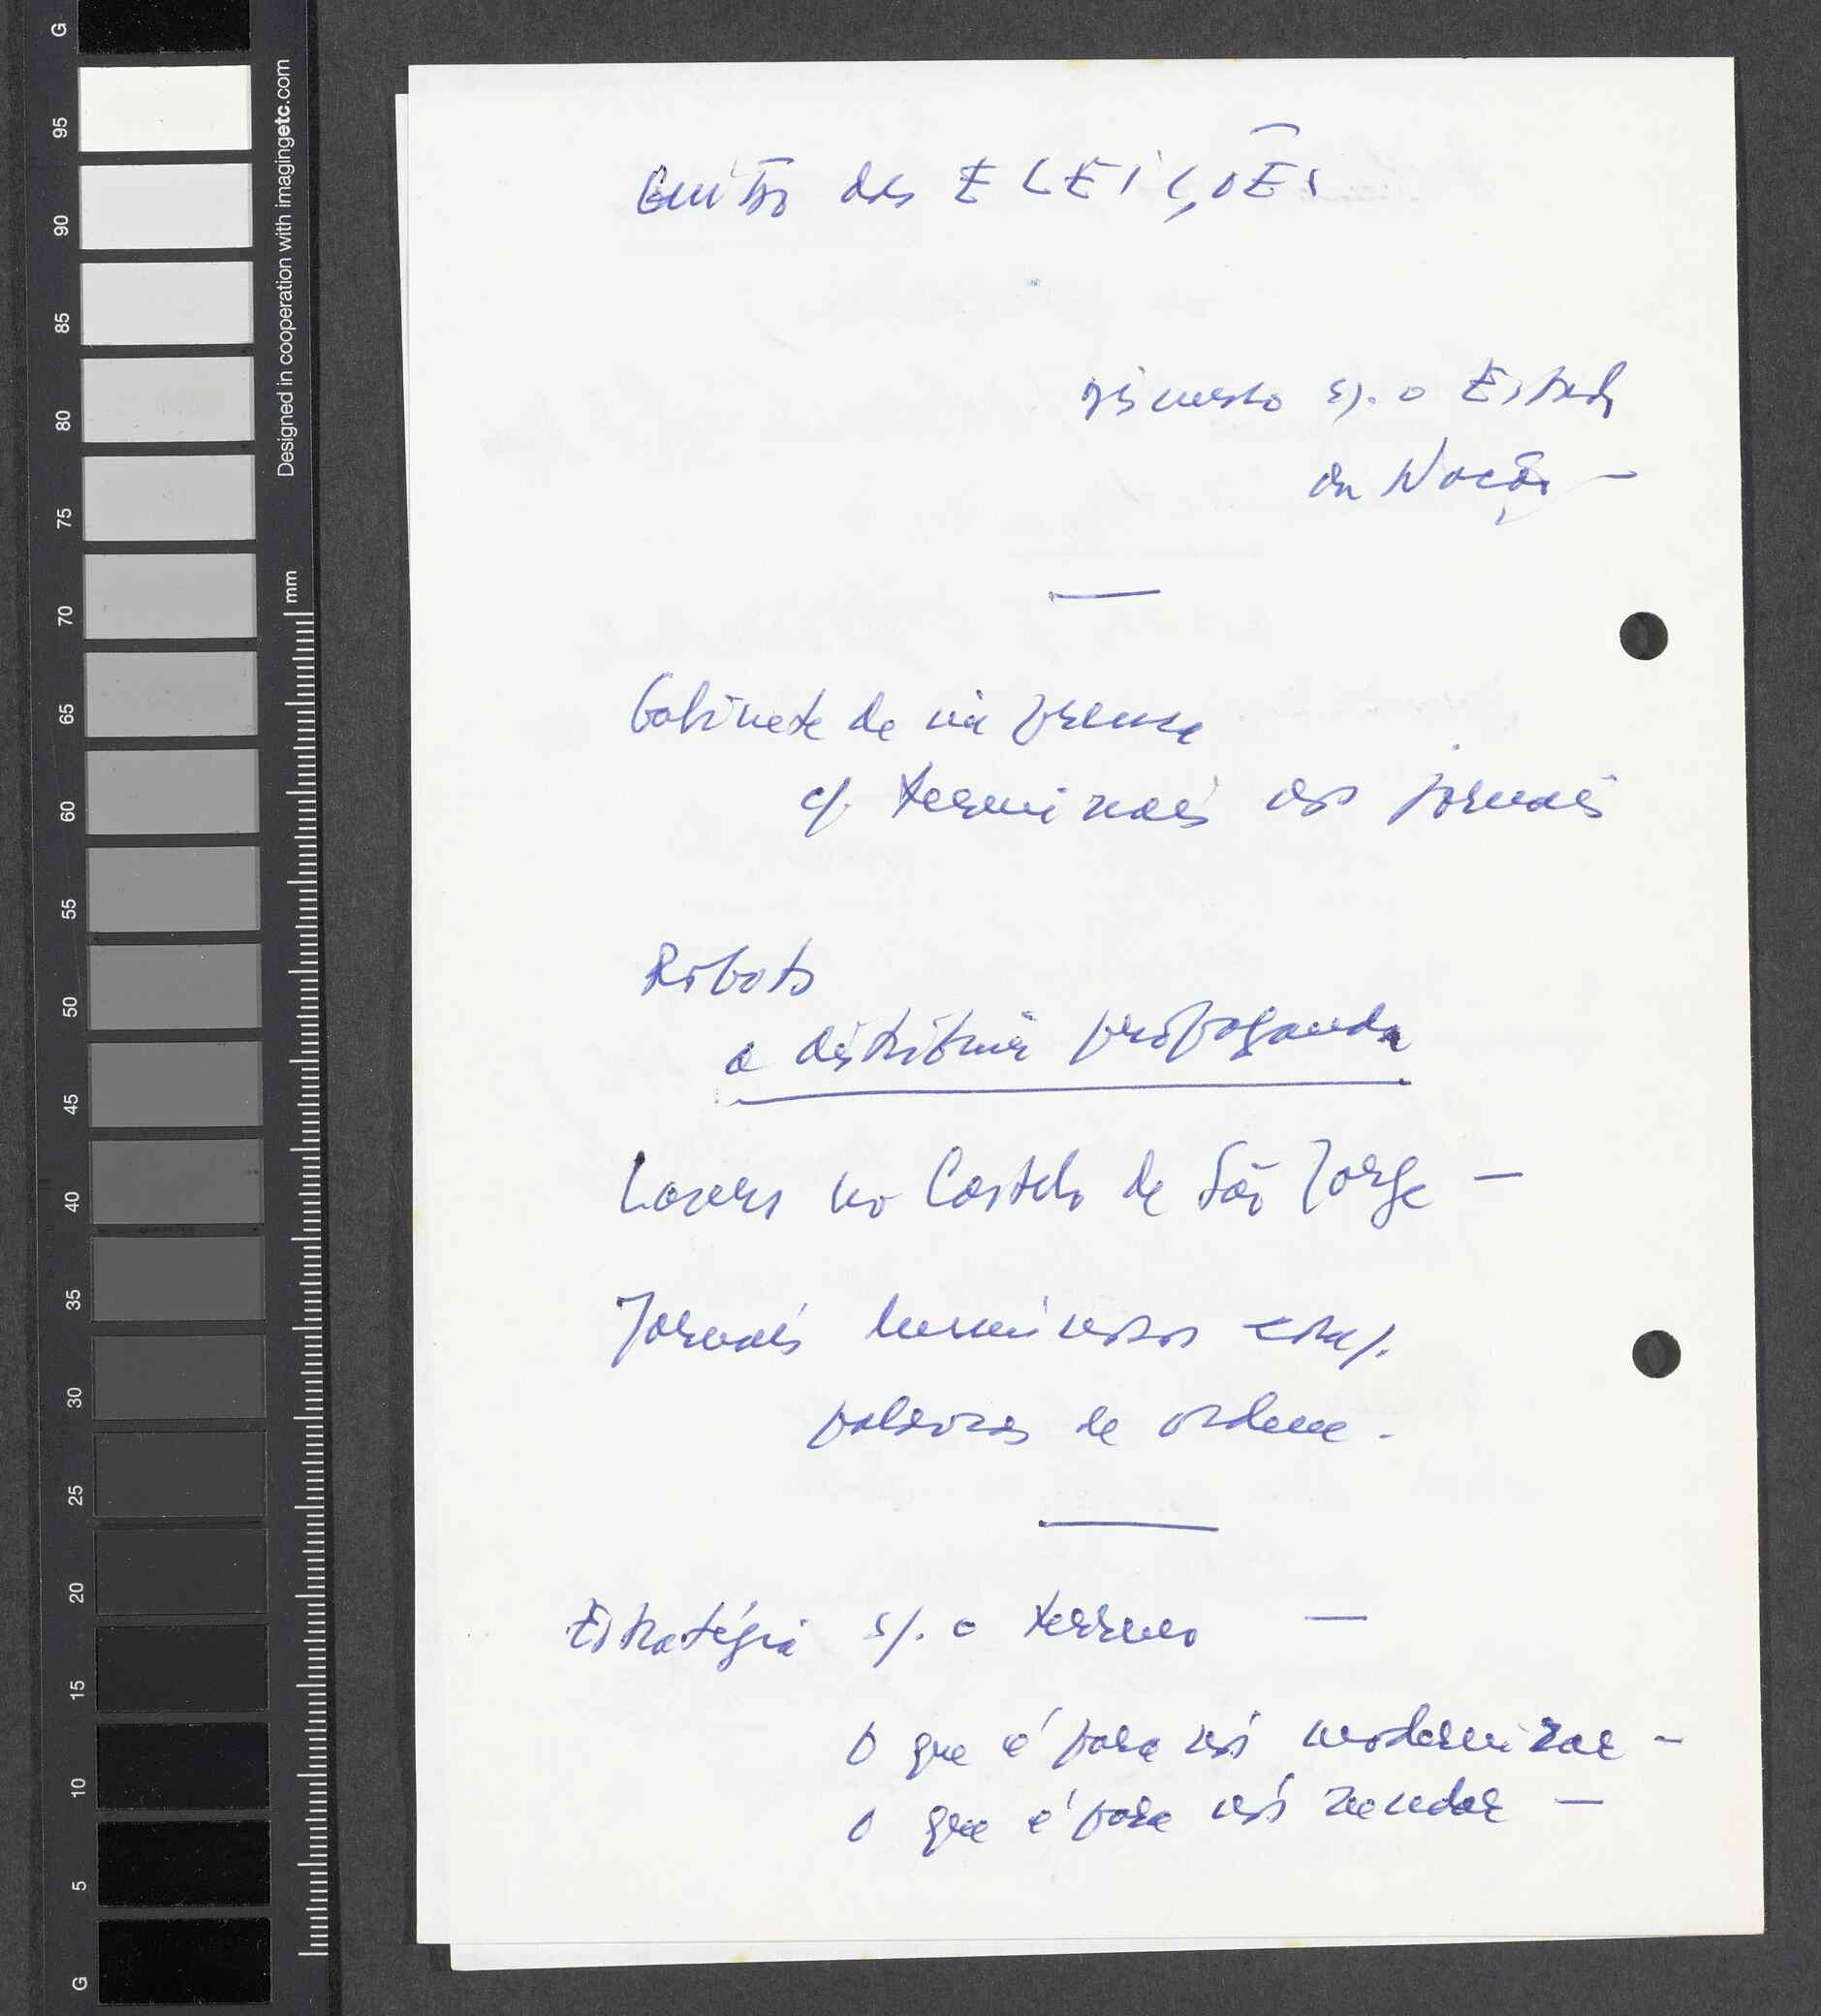 das ELEIÇÕES
discurso s/. o Estado
da Nação —
Gabinete de imprensa
c/. terminais nos jornais
Robots
a distribuir propaganda
Lasers no Castelo de São Jorge —
Jornais luminosos com/.
palavras de ordem.
Estratégia s/. o terreno —
O que é para nós modernizar —
O que é para nós mudar —
G
95
90
85
80
75
70
65
60
55
50
45
40
35
30
25
20
15
10
5
G
Designed in cooperation with imagingetc.com
mm